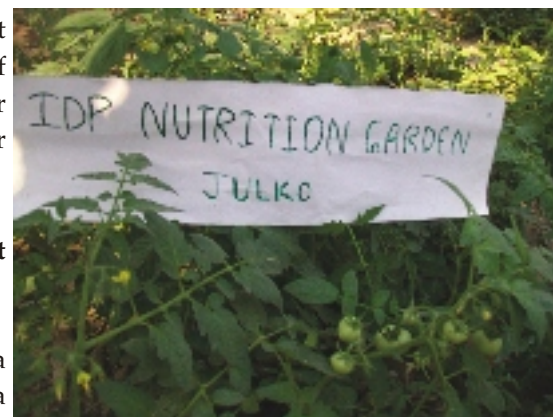 t
f
r
r
IDP NUTRITION GARDEN
JULKO
t
a
a